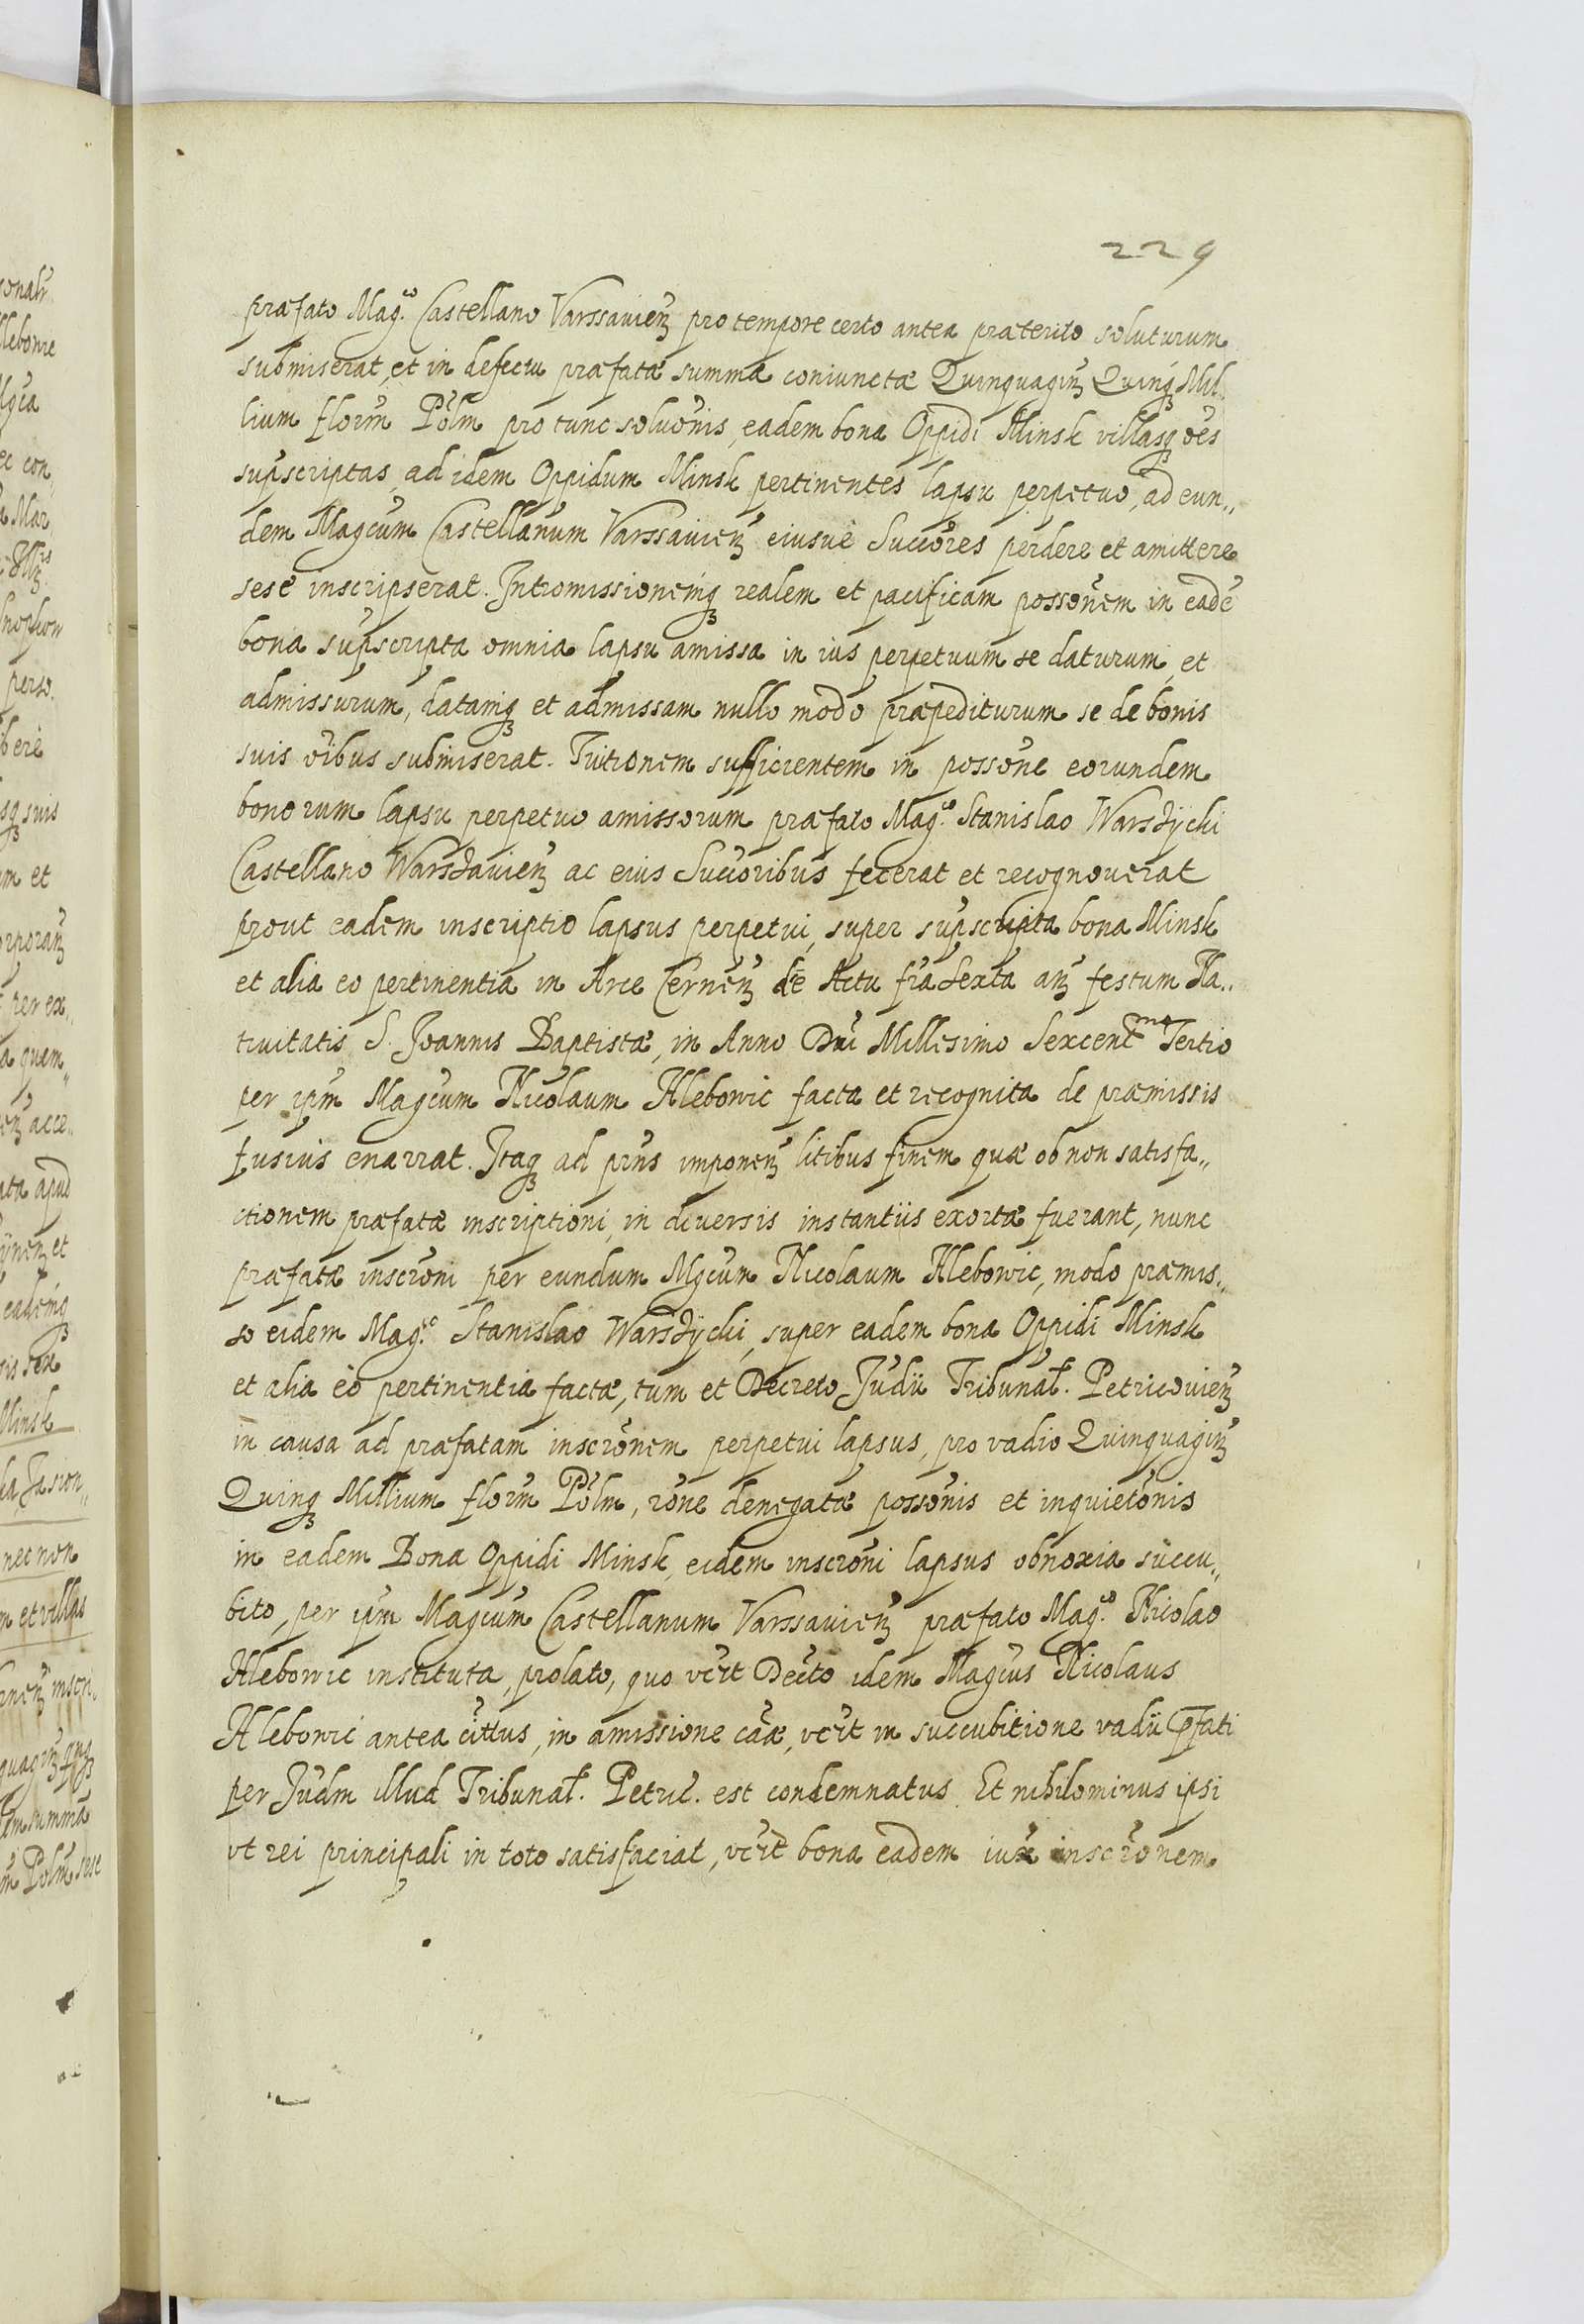 229
præfato Mag.co Castellano Varssavieñ pro tempore certo antea præterito soluturum
submiserat, et in defectu præfatæ summæ coniunctæ Quinquagin̄ Quinq3 Mil,,
lium florm̄ Polm̄ pro tunc soluōnis, eadem bona Oppidi Minsk villasq3 oēs
sup̄scriptas, ad idem Oppidum Minsk pertinentes lapsu perpetuo, ad eun,,
dem Magcum Castellanum Varssavieñ eiusuè Succōres perdere et amittere
sesè inscripserat. Intromissionemq3 realem et pacificam possōnem in eadē
bona sup̄scripta omnia lapsu amissa in ius perpetuum se daturum, et
admissurum, datamq3 et admissam nullo modo præpediturum se de bonis
suis oībus submiserat. Tuitionem sufficientem in possōne eorundem
bonorum lapsu perpetuo amissorum præfato Mag.co Stanislao Warsзÿcki
Castellano Warsзavieñ ac eius Succōribus fecerat et recognouerat
prout eadem inscriptio lapsus perpetui, super sup̄scripta bona Minsk
et alia eo pertinentia in Arce Cerneñ de Actu fr̄ia Sexta añ festum Na,,
tiuitatis S. Joannis Baptistæ, in Anno Dn̄i Millesimo Sexcentmo Tertio
per ip̄m Magcum Nicolaum Hlebowic facta et recognita de præmissis
fusius enarrat. Itaq3 ad prn̄s imponeñ litibus finem quæ ob non satisfa,,
ctionem præfatæ inscriptioni, in diuersis instantiis exortæ fuerant, nunc
præfatæ inscrōni per eundum Mgcum Nicolaum Hlebowic, modo præmis,,
so eidem Mag.co Stanislao Warsзÿcki, super eadem bona Oppidi Minsk
et alia eò pertinentia factæ, tum et Decreto Judii Tribunal. Petricovieñ
in causa ad præfatam inscrōnem perpetui lapsus, pro vadio Quinquagiñ
Quinq3 Millium florm̄ Polm̄, rōne denegatæ possōnis et inquietōnis
in eadem Bona Oppidi Minsk, eidem inscrōni lapsus obnoxia succu,,
bito, per ip̄m Magcum Castellanum Varssavieñ præfato Mag.co Nicolao
Hlebowic instituta, prolato, quo vērt Decto idem Magcus Nicolaus
Hlebowic antea cittus, in amissione cāæ, vērt in succubitione vadii p̄fati
per Judm illud Tribunal. Petric. est condemnatus. Et nihilominus ipsi
vt rei principali in toto satisfaciat, vērt bona eadem iux̄ inscrōnem